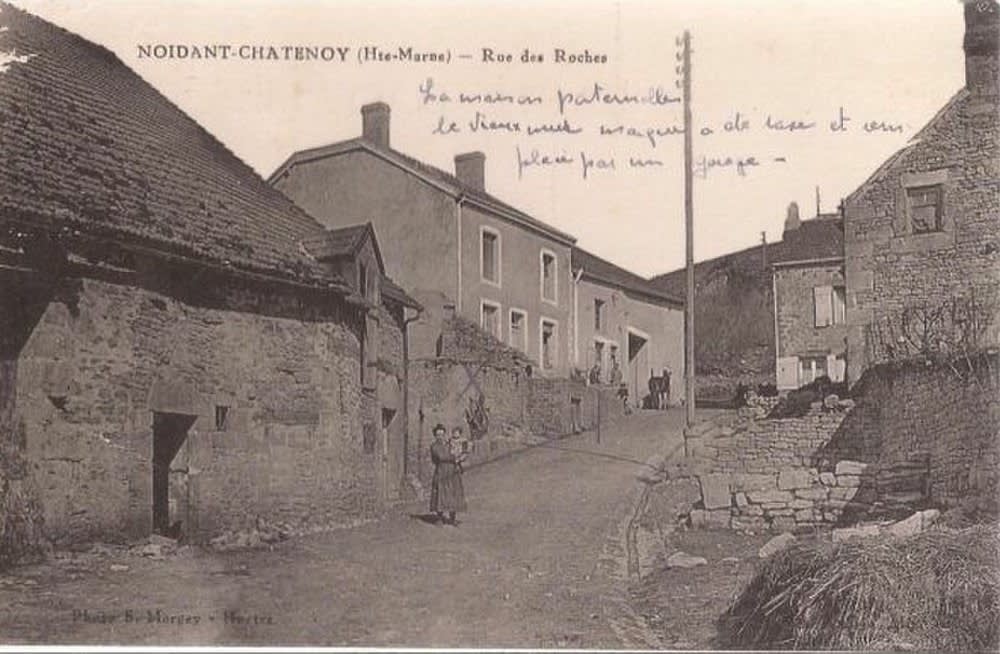 NOIDANT-CHATENOY (Hte-Marne) — Rue des Roches
La maison paternelle
le vieux mur a été rasé et rem
placé par un garage -
Photo E. Morgey - Hortes